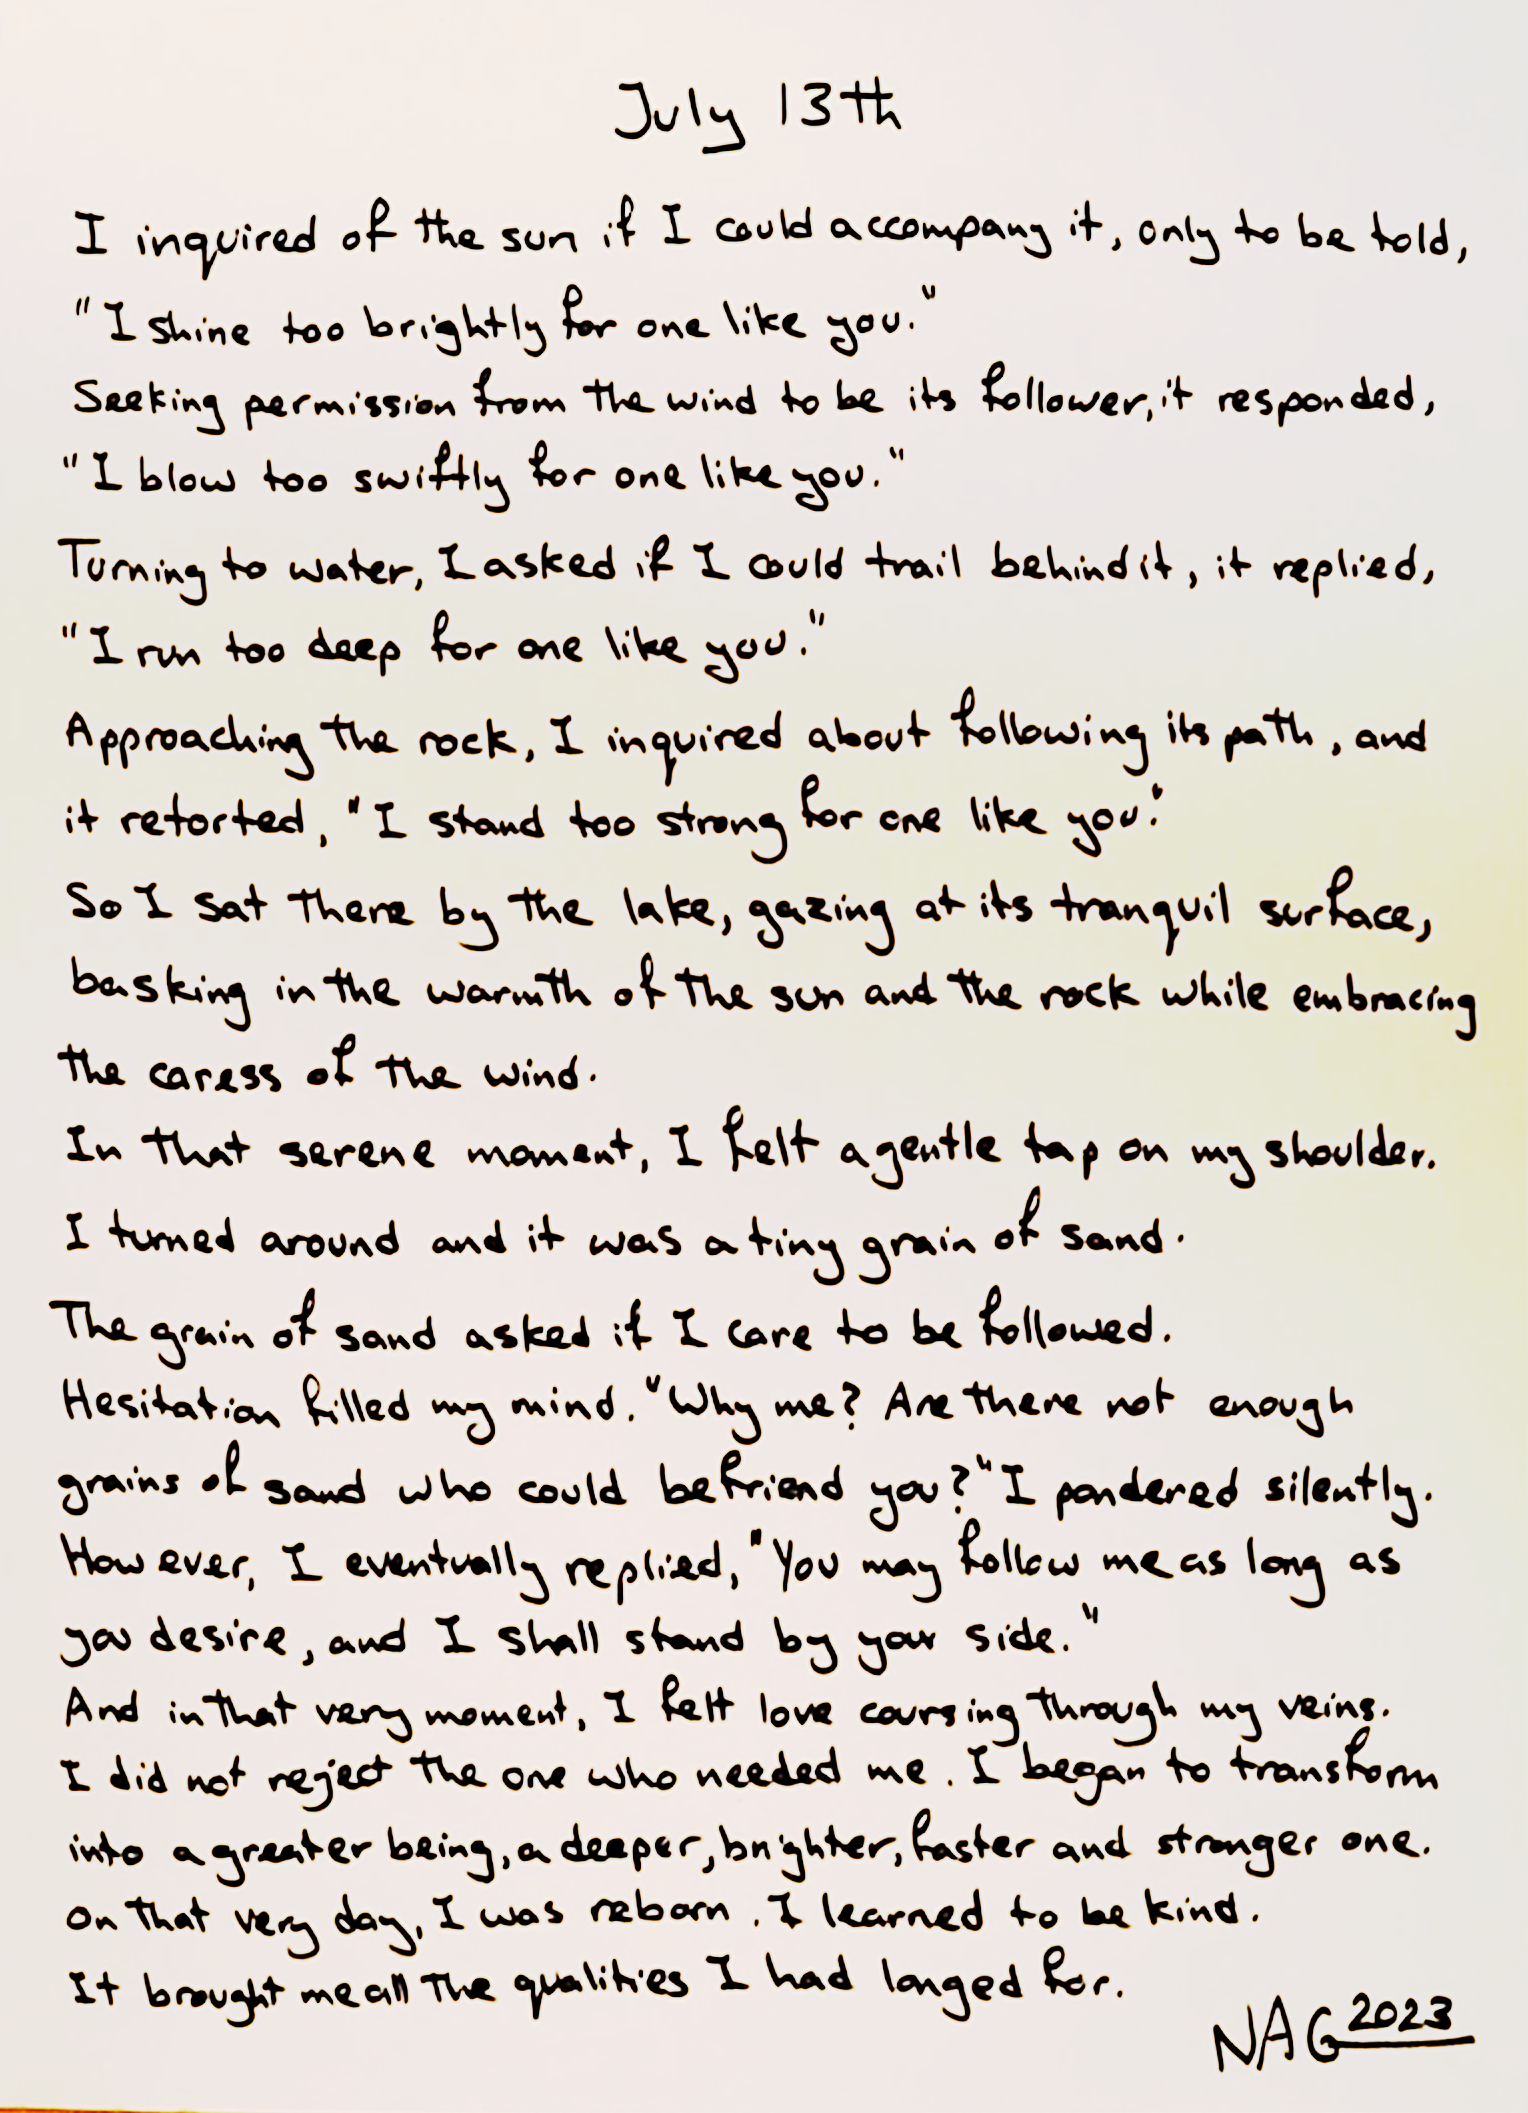 July 13th
I inquired of the sun if I could accompany it, only to be told,
"I shine too brightly for one like you."
Seeking permission from the wind to be its follower, it responded,
"I blow too swiftly for one like you."
Turning to water, I asked if I could trail behind it, it replied,
"I run too deep for one like you."
Approaching the rock, I inquired about following its path, and
it retorted, "I stand too strong for one like you."
So I sat there by the lake, gazing at its tranquil surface,
basking in the warmth of the sun and the rock while embracing
the caress of the wind.
In that serene moment, I felt a gentle tap on my shoulder.
I turned around and it was a tiny grain of sand.
The grain of sand asked if I care to be followed.
Hesitation filled my mind. "Why me? Are there not enough
grains of sand who could befriend you?" I pondered silently.
However, I eventually replied, "You may follow me as long as
you desire, and I shall stand by your side."
And in that very moment, I felt love coursing through my veins.
I did not reject the one who needed me. I began to transform
into a greater being, a deeper, brighter, faster and stronger one.
On that very day, I was reborn. I learned to be kind.
It brought me all the qualities I had longed for.
NAG 2023